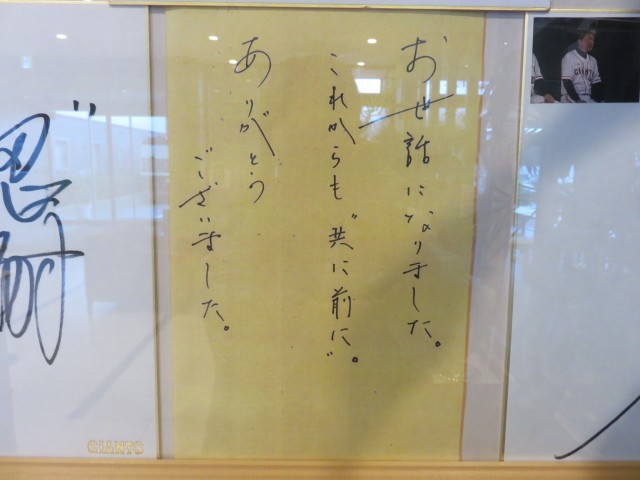 お世話になりました。
これからも"共に前に"。
ありがとう
ございました。
忍耐
GIANTS
GIANTS